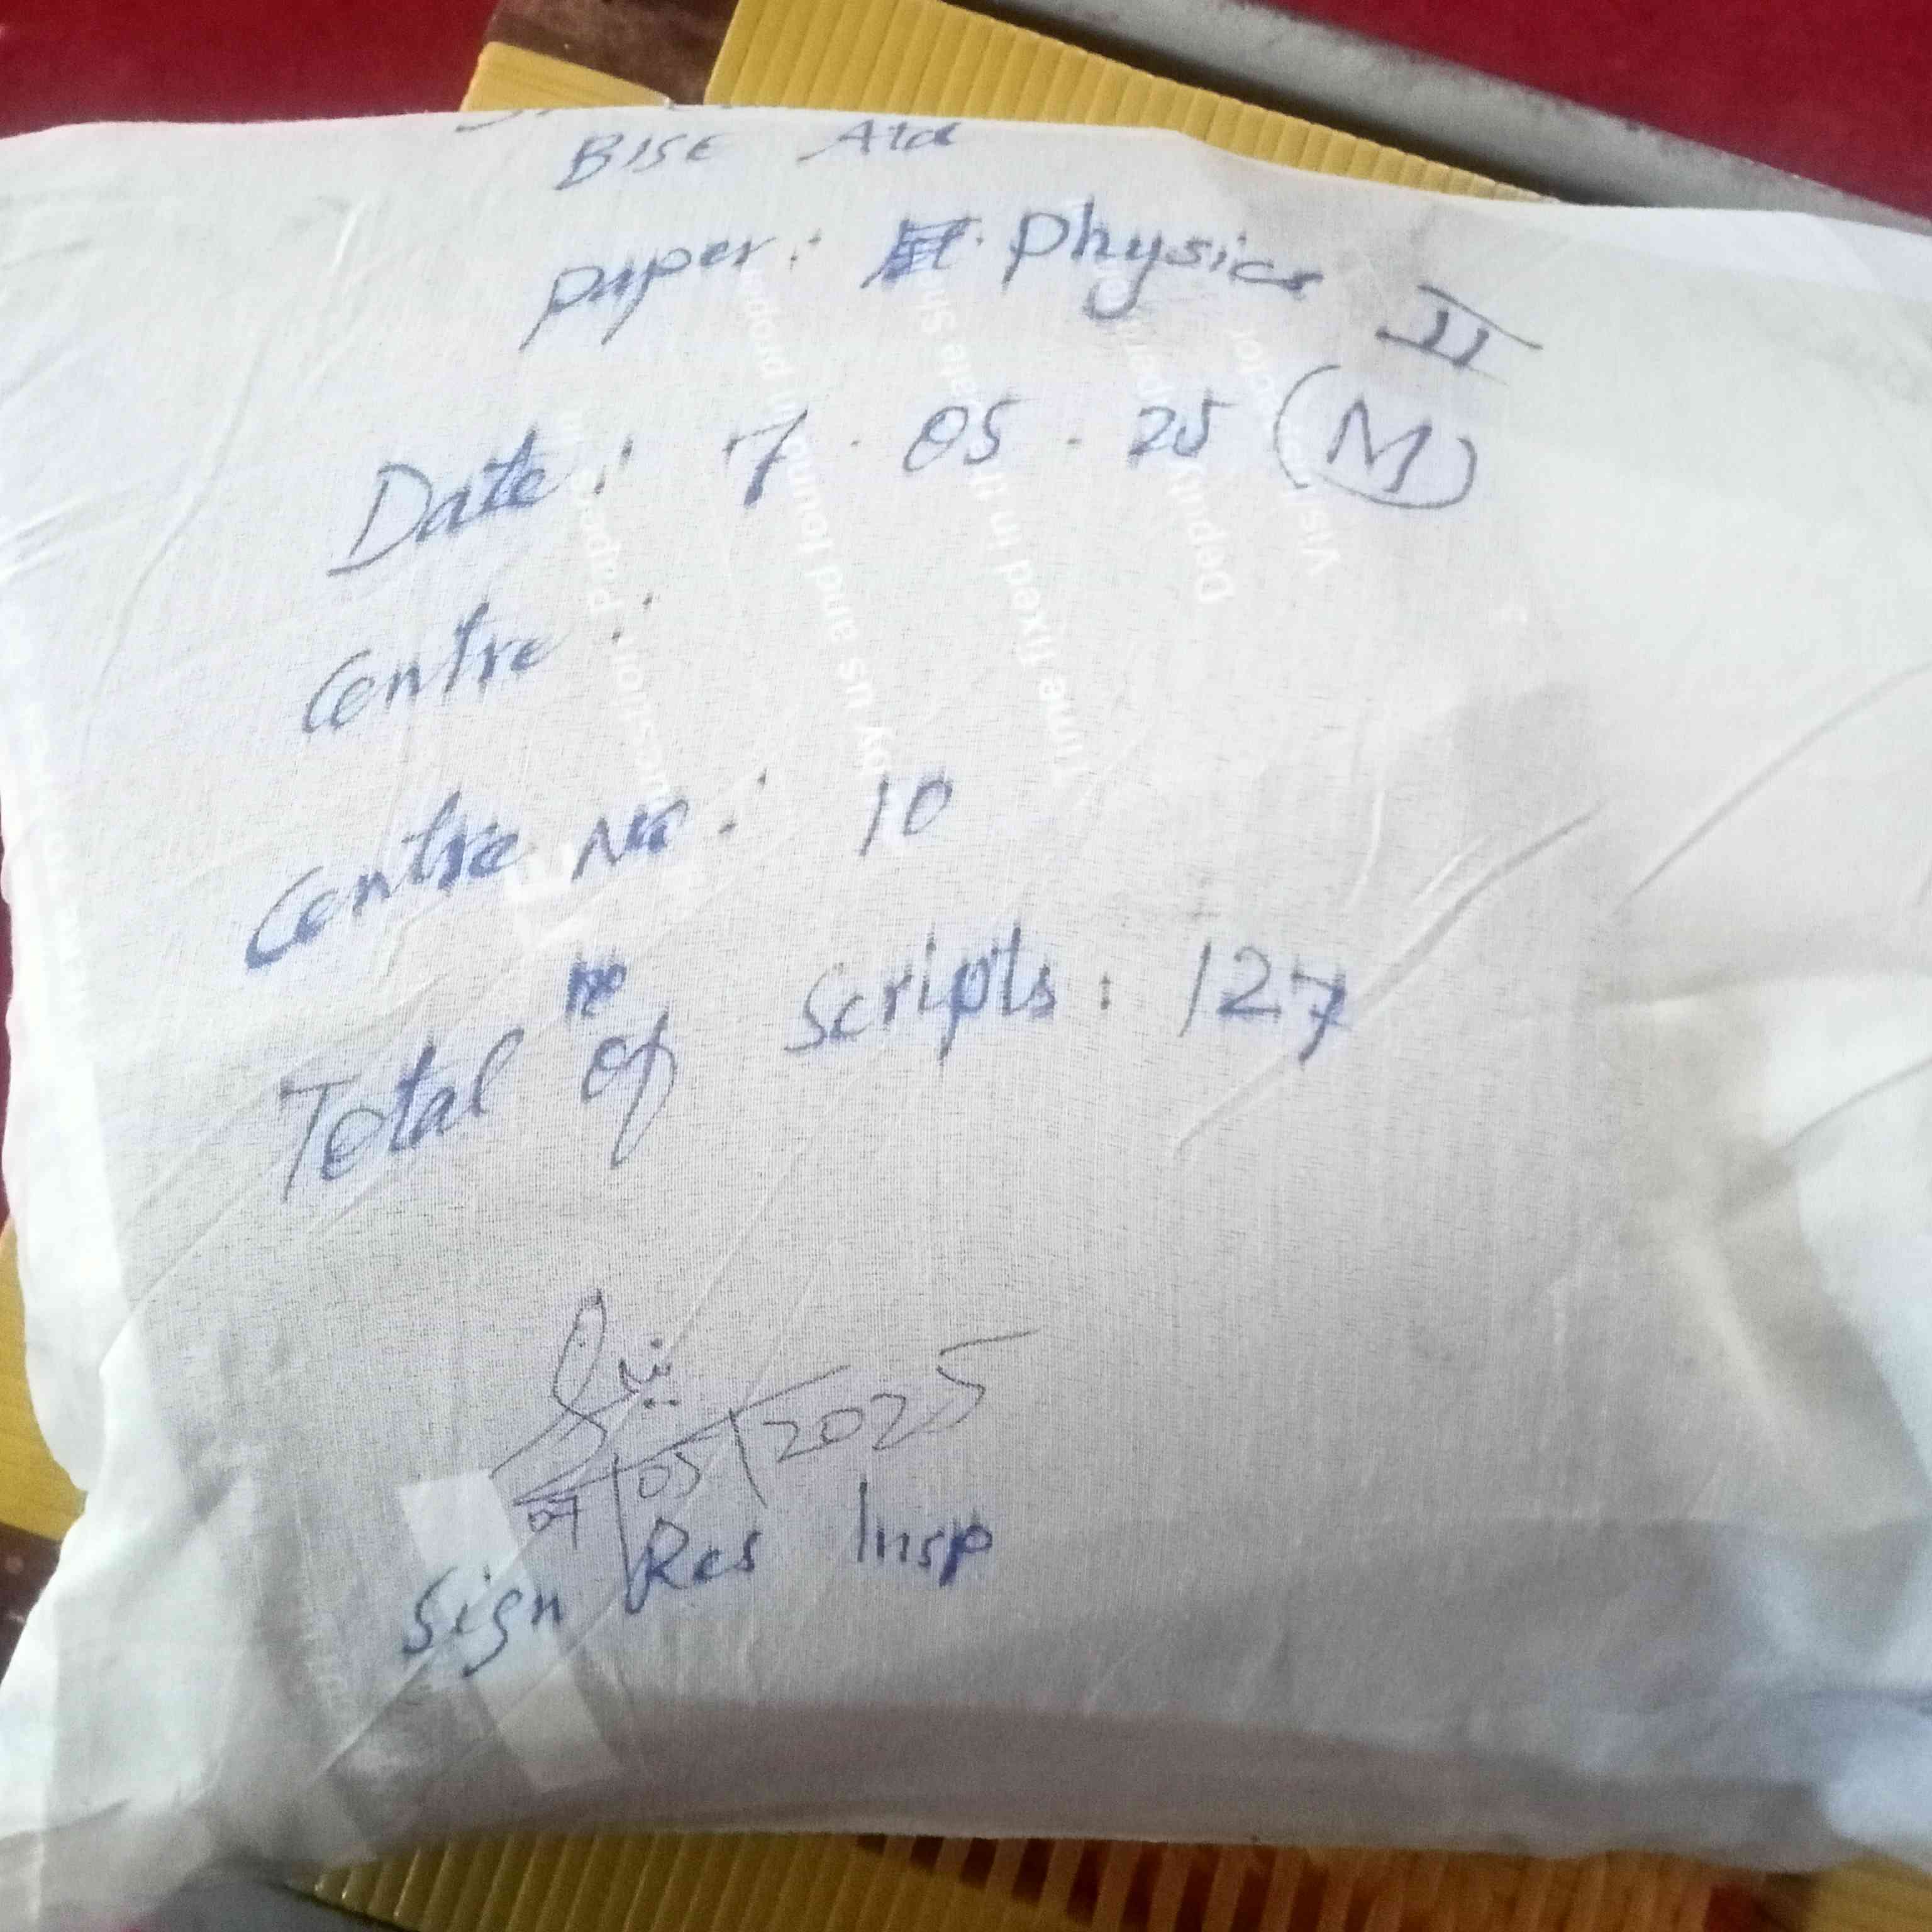 BISE Atd
Paper: Physics II
Date: 7.05.25 (M)
Centre:
Centre no: 10
Total no of Scripts: 127
07/05/2025
Sign Res Insp